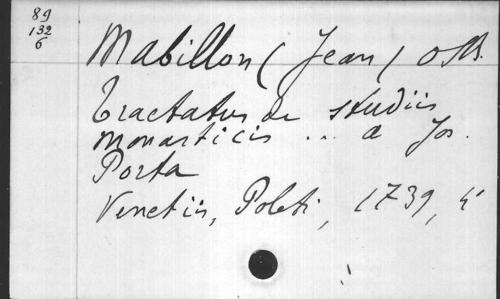 89
132
6
Mabillon (Jean) OSB.
Tractatus de studiis
monasticis ... a Jos.
Porta
Venetiis, Poleti, 1739, 4°